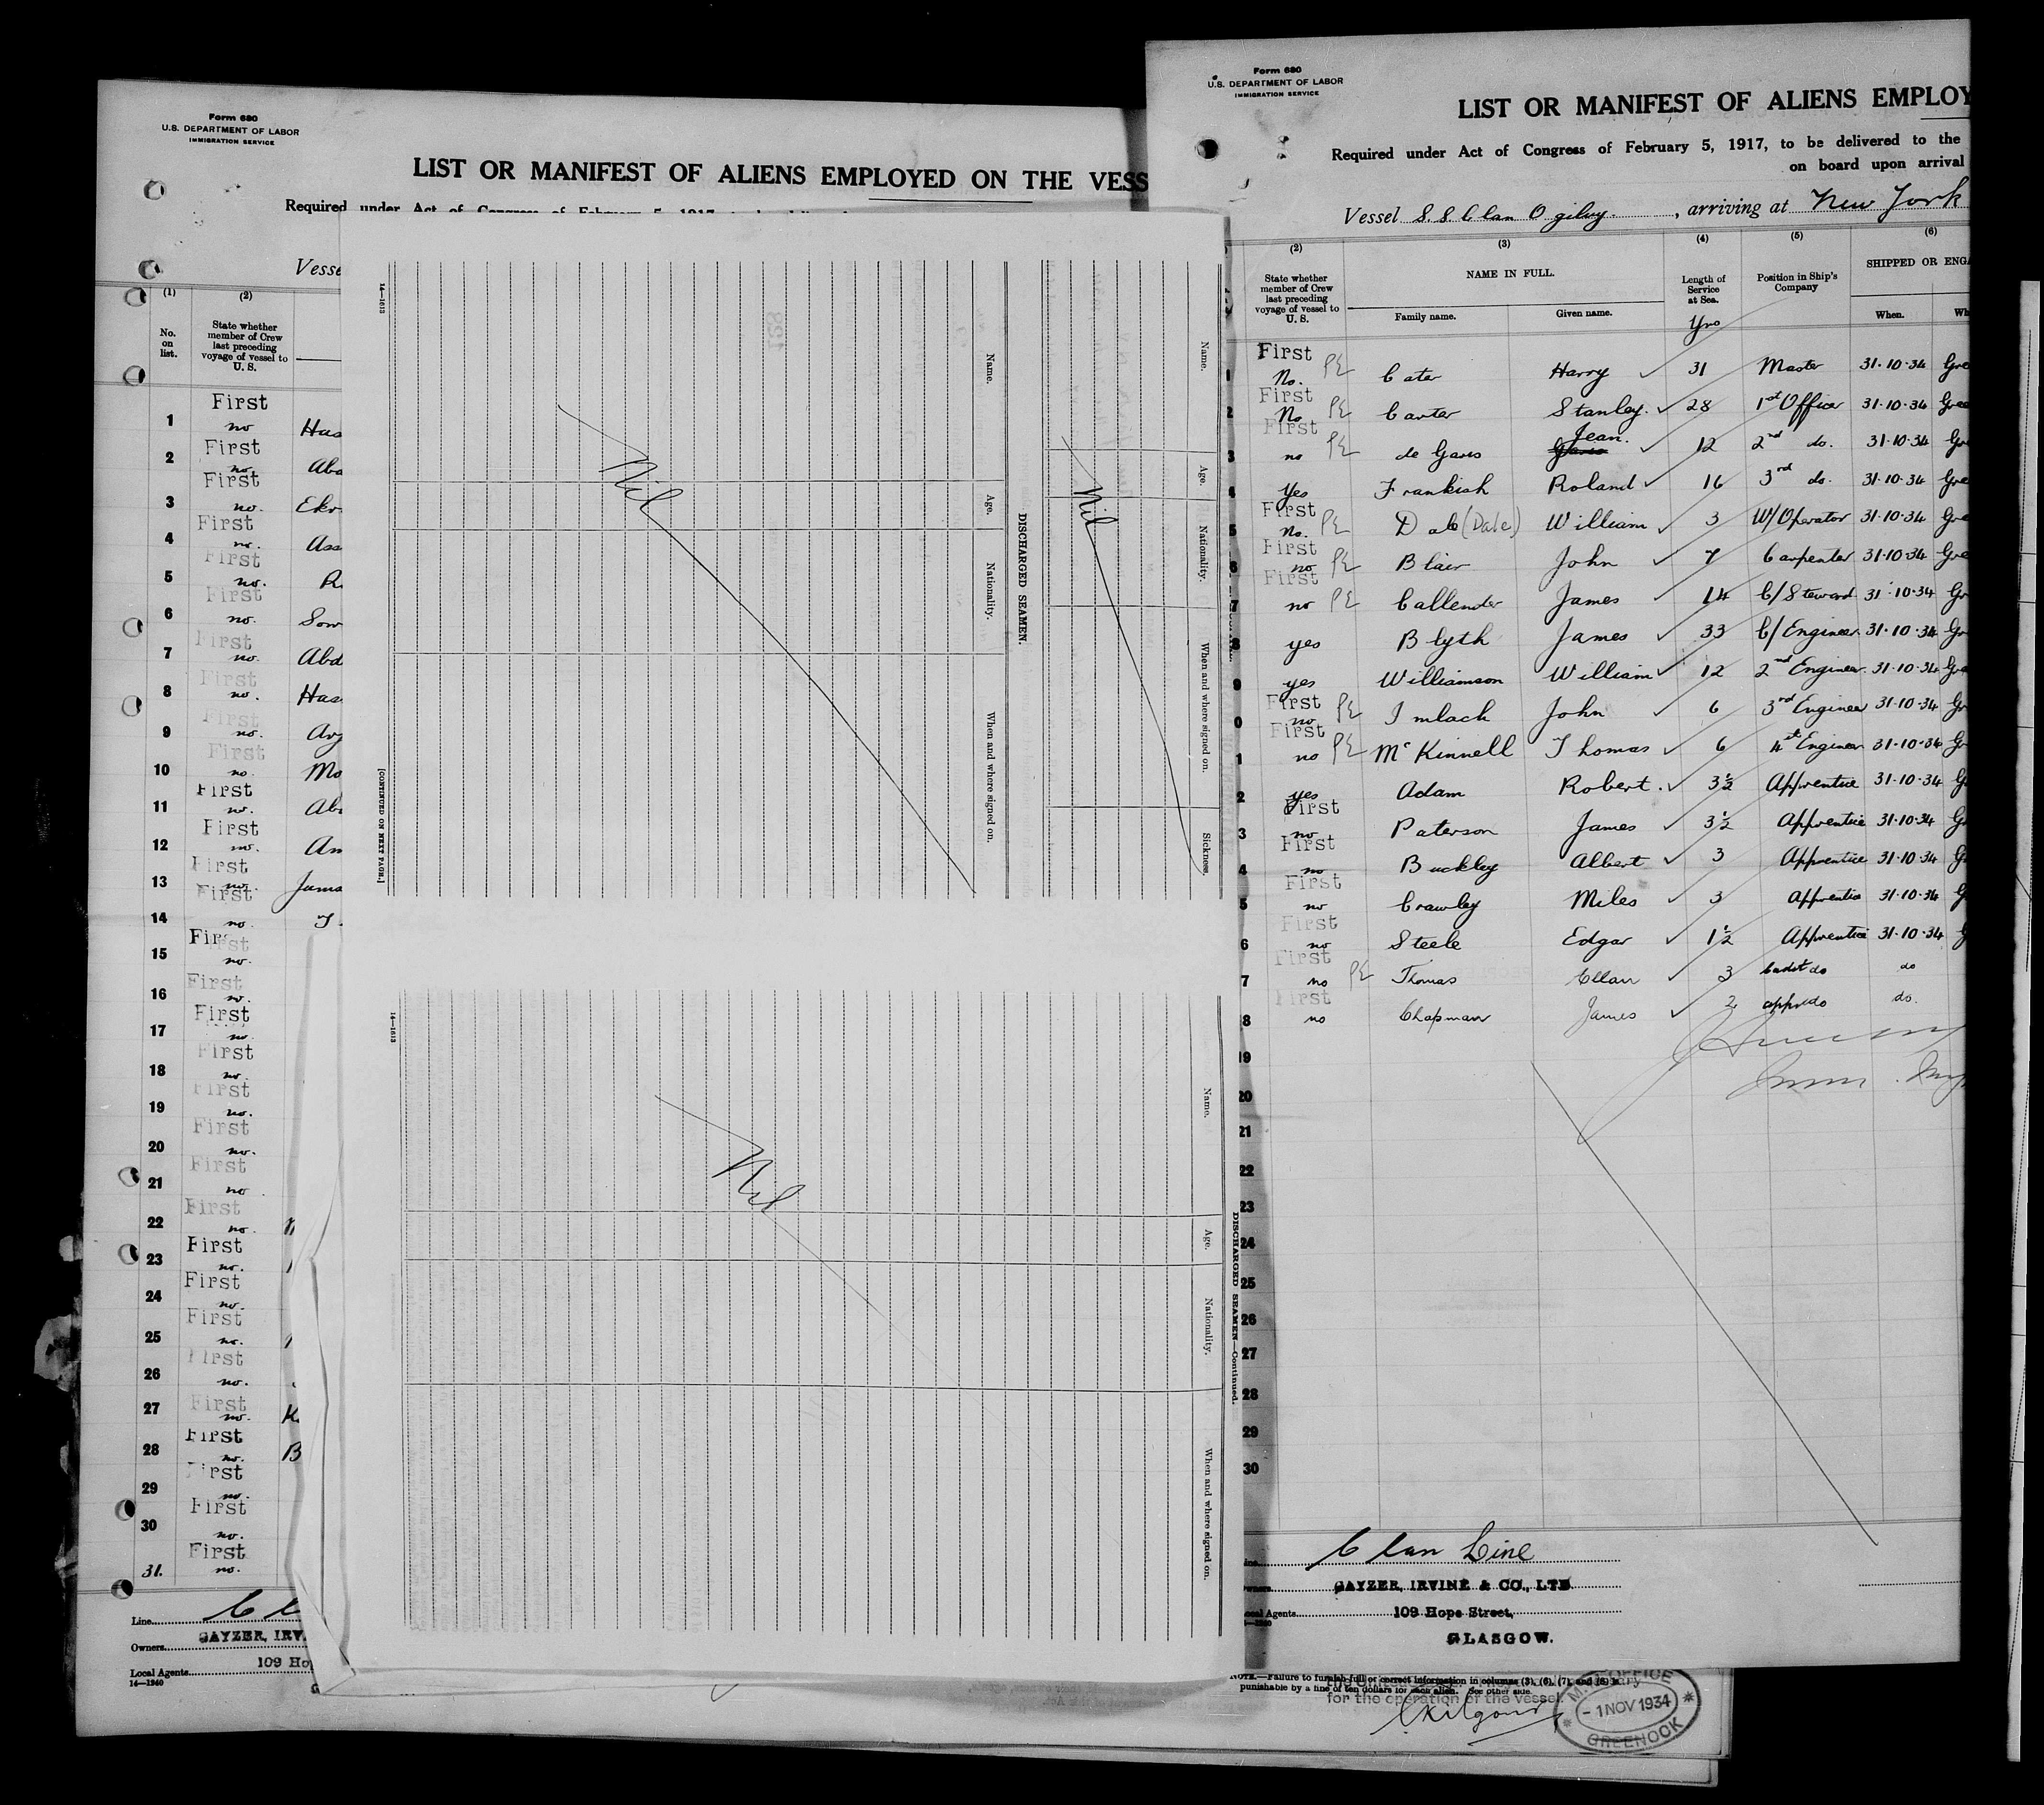 Form 680
U.S. DEPARTMENT OF LABOR
IMMIGRATION SERVICE
LIST OR MANIFEST OF ALIENS EMPLOYED ON THE VESS
Required under Act of Congress of February 5, 1917,
Vesse
(1) (2)
No. on list.
State whether member of Crew last preceding voyage of vessel to U. S.
First
1 no Has
First
2 no. Abd
First
3 no. Ekr
First
4 no. Ass
First
5 no. R
First
6 no. Som
First
7 no. Abd
First
8 no. Has
First
9 no.
First
10 no. Mo
First
11 no. Ab
First
12 no. Am
First
13 no. Jama
First
14 no.
First
15 no.
First
16 no.
First
17 no.
First
18 no.
First
19 no.
First
20 no.
First
21 no
First
22 no.
First
23 no.
First
24 no.
First
25 no.
First
26 no.
First
27 no. K
First
28 no. B
First
29 no.
First
30 no.
First
31. no.
Line
Owners CAYZER, IRV
Local Agents 109 Hop
14—1940
14—1613
[CONTINUED ON NEXT PAGE.]
Name. Age. Nationality. When and where signed on.
Nil
DISCHARGED SEAMEN.
Name. Age. Nationality. When and where signed on. Sickness.
Nil
14—1613
Name. Age. Nationality. When and where signed on.
Nil
DISCHARGED SEAMEN—Continued.
Form 680
U.S. DEPARTMENT OF LABOR
IMMIGRATION SERVICE
LIST OR MANIFEST OF ALIENS EMPLOY
Required under Act of Congress of February 5, 1917, to be delivered to the
on board upon arrival
Vessel S.S. Clan Ogilvy, arriving at New York
(2) (3) (4) (5) (6)
State whether member of Crew last preceding voyage of vessel to U. S.
NAME IN FULL.
Family name. Given name.
Length of Service at Sea.
Yrs
Position in Ship's Company
SHIPPED OR ENGA
When. Wh
First
1 No. PE Cater Harry ✓ 31 Master 31.10.34 Gre
First
2 No PE Carter Stanley. ✓ 28 1st Officer 31.10.34 Gree
First
3 no PE de Garis Jean. ✓ 12 2nd do. 31.10.34 Gr
4 Yes Frankish Roland ✓ 16 3rd do. 31.10.34 Gre
First
5 No. PE Dale (Dale) William ✓ 3 W/Operator 31.10.34 Gre
First
6 no PE Blair John ✓ 7 Carpenter 31.10.34 Gre
First
7 no PE Callender James ✓ 14 C/Steward 31.10.34 Gr
8 yes Blyth James ✓ 33 C/Engineer. 31.10.34 Gr
9 yes Williamson William ✓ 12 2nd Engineer. 31.10.34 Gre
First
0 no PE Imlach John ✓ 6 3rd Engineer 31.10.34 Gr
First
1 no PE McKinnell Thomas ✓ 6 4th Engineer 31.10.34 Gr
2 yes Adam Robert. ✓ 3½ Apprentice 31.10.34 G
First
3 no Paterson James ✓ 3½ Apprentice 31.10.34 G
First
4 no Buckley Albert ✓ 3 Apprentice 31.10.34 G
First
5 no Crawley Miles ✓ 3 Apprentice 31.10.34 G
First
6 no Steele Edgar ✓ 1½ Apprentice 31.10.34 G
First
7 no PE Thomas Ellan ✓ 3 Cadet do do
First
8 no Chapman James ✓ 2 appr do do.
19
20
21
22
23
24
25
26
27
28
29
30
Clan Line
CAYZER, IRVINE & CO., LTD
ocal Agents 109 Hope Street,
GLASGOW.
NOTE.—Failure to furnish full or correct information in columns (3), (6), (7), and (8) is
punishable by a fine of ten dollars for each alien. See other side.
for the operation of the vessel.
OFFICE
- 1 NOV 1934
GREENOCK